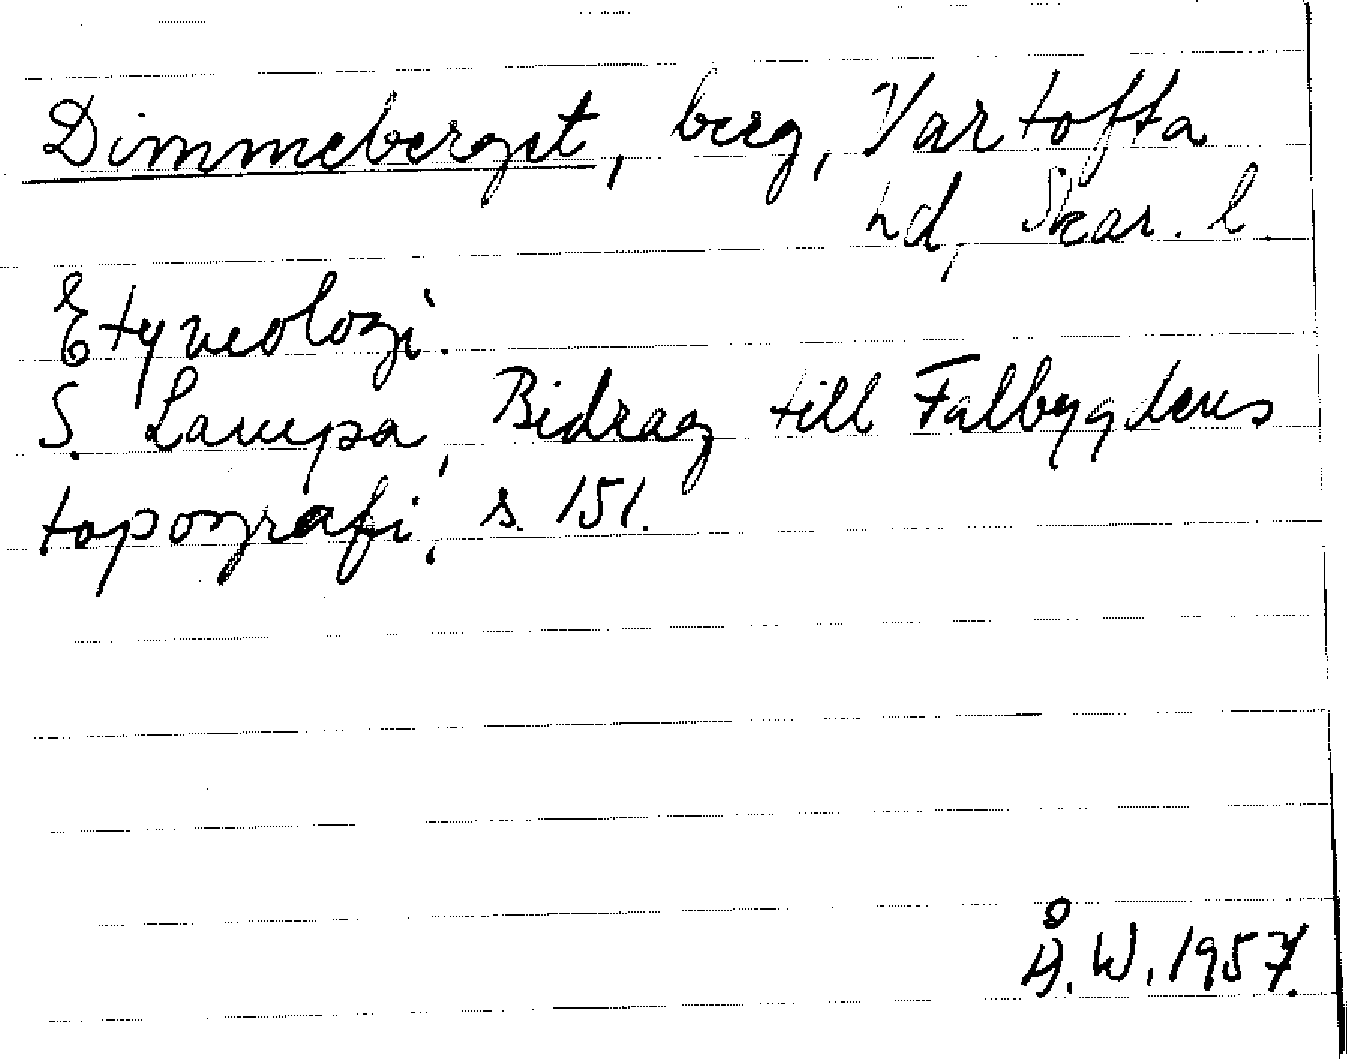 Dimmeberget, berg, Vartofta
hd, Skar. l.
Etymologi.
S. Lampa, Bidrag till Falbygdens
topografi, s. 151.
Å. W. 1957.